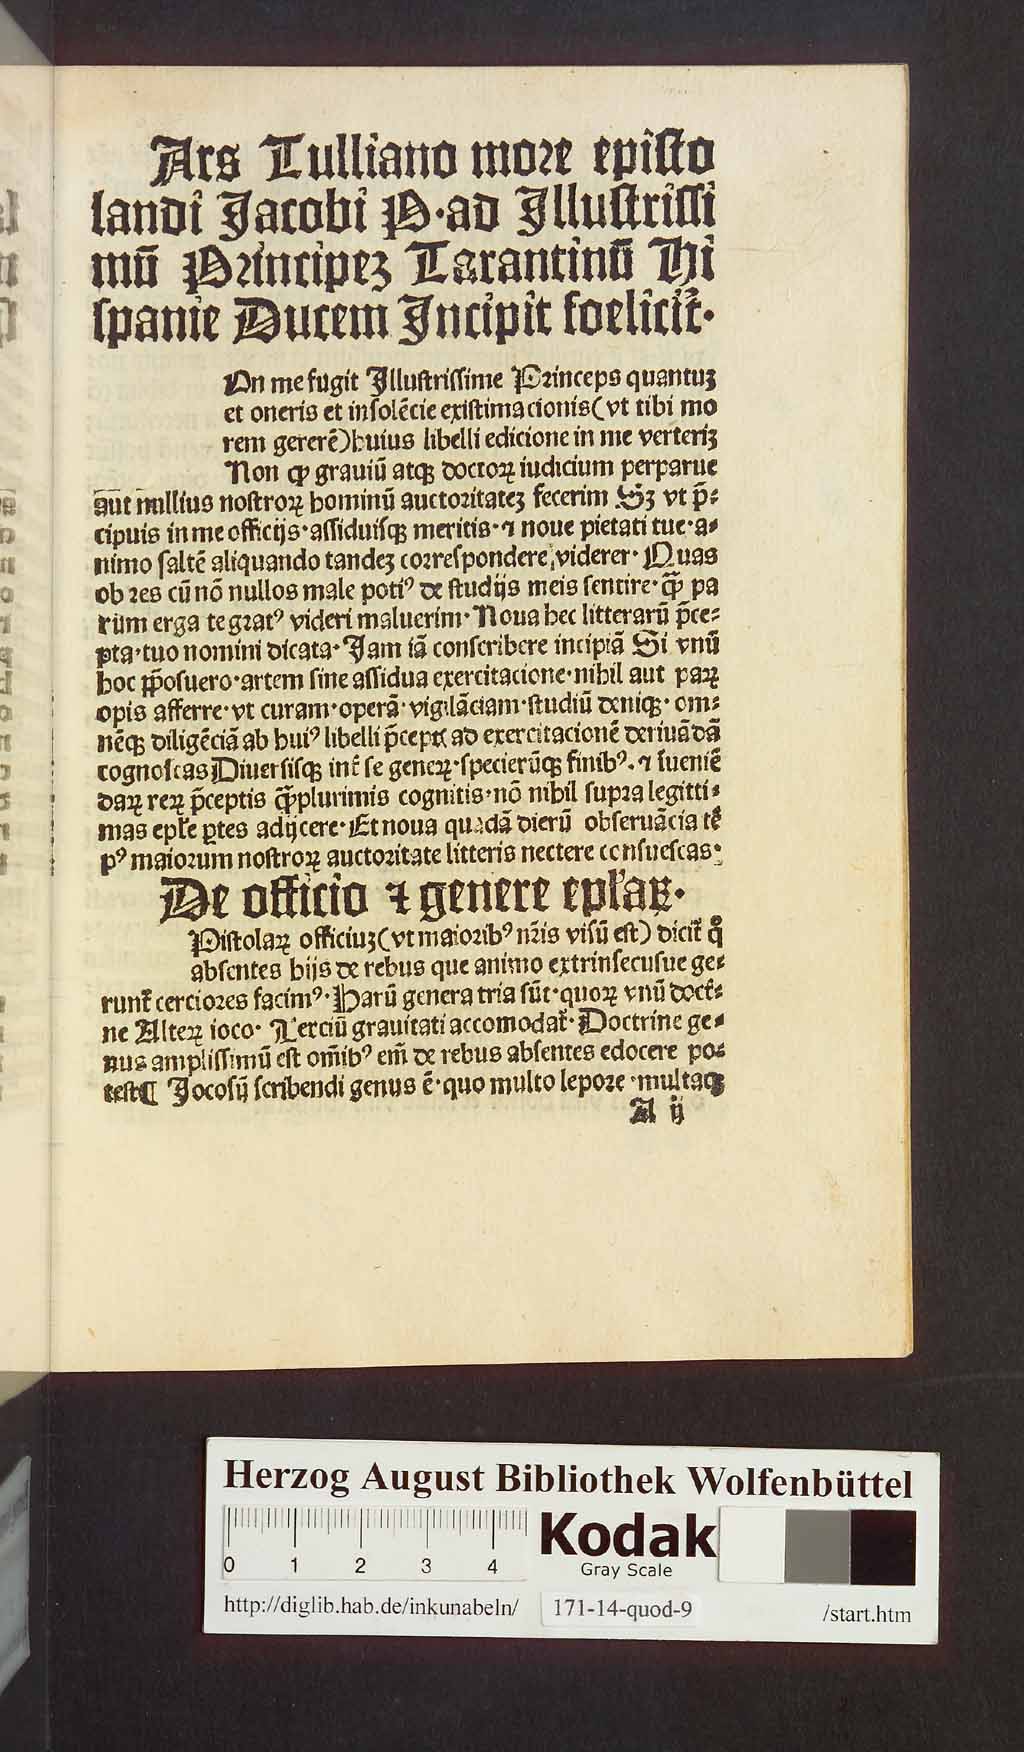 Ars Tulliano more episto
landi Jacobi P·ad Illustrissi
mū Principeꝫ Tarantinū Hi
spanie Ducem Incipit foelicit̄·
On me fugit Illustrissime Princeps quantuꝫ
et oneris et insolēcie existimacionis(vt tibi mo
rem gererē)huius libelli edicione in me verteriꝫ
Non ꝙ grauiū atqꝫ doctoꝝ iudicium perparue
aut nullius nostroꝝ hominū auctoritateꝫ fecerim Sꝫ vt p̄⸗
cipuis in me officijs·assiduisqꝫ meritis·⁊ noue pietati tue·a⸗
nimo saltē aliquando tandeꝫ correspondere viderer·Quas
ob res cū nō nullos male potiꝰ de studijs meis sentire·q̄ꝫ pa
rum erga te gratꝰ videri maluerim·Noua hec litterarū p̄ce⸗
pta·tuo nomini dicata·Jam iā conscribere incipiā Si vnū
hoc ꝓposuero·artem sine assidua exercitacione·nihil aut paꝝ
opis afferre·vt curam·operā·vigilāciam·studiū deniqꝫ·om⸗
nēqꝫ diligēciā ab huiꝰ libelli p̄ceptꝭ ad exercitacionē deriuādā
cognoscas Diuersisqꝫ int̄ se geneꝝ·specierūqꝫ finibꝰ·⁊ īueniē
daꝝ reꝝ p̄ceptis q̄ꝫplurimis cognitis·nō nihil supra legitti⸗
mas epl̄e ꝑtes adijcere·Et noua quadā dierū obseruācia tē
pꝰ maiorum nostroꝝ auctoritate litteris nectere consuescas·
De officio ⁊ genere epl̄aꝝ·
Pistolaꝝ officiuꝫ(vt maioribꝰ nr̄is visū est) dicit̄ qͦ
absentes hijs de rebus que animo extrinsecusue ge⸗
runt̄ cerciores facimꝰ·Harū genera tria sūt·quoꝝ vnū doct̄⸗
ne Alteꝝ ioco·Terciū grauitati accomodat̄·Doctrine ge⸗
nus amplissimū est om̄ibꝰ em̄ de rebus absentes edocere po⸗
test¶ Jocosū scribendi genus ē·quo multo lepore·multaqꝫ
A ij
Herzog August Bibliothek Wolfenbüttel
0 1 2 3 4
Kodak
Gray Scale
http://diglib.hab.de/inkunabeln/ 171-14-quod-9 /start.htm